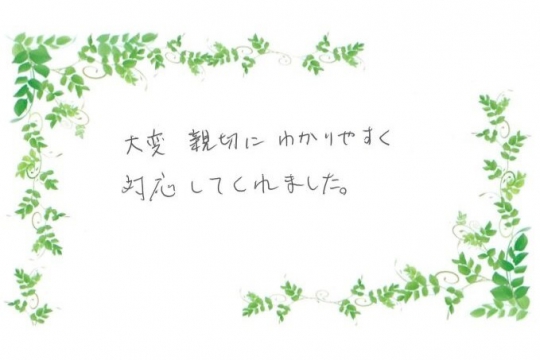 大変 親切に わかりやすく
対応してくれました。